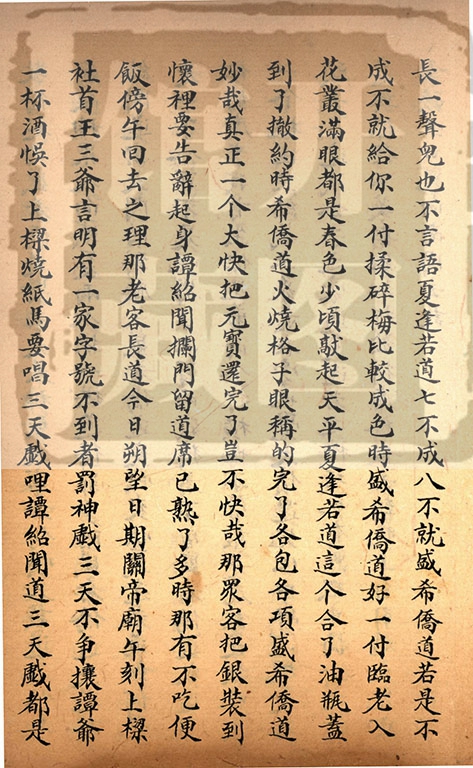 長一聲兒也不言語夏逢若道七不成八不就盛希僑道若是不
成不就給你一付揉碎梅比較成色時盛希僑道好一付臨老入
花叢滿眼都是春色少頃敲起天平夏逢若道這个合了油瓶蓋
到了撤約時希僑道火燒格子眼稱的完了各包各項盛希僑道
妙哉真正一个大快把元寶還完了豈不快哉那眾客把銀裝到
懷裡要告辭起身譚紹聞攔門留道席已熟了多時那有不吃便
飯傍午回去之理那老客長道今日朔望日期關帝廟午刻上樑
社首王三爺言明有一家字號不到者罰神戲三天不爭攘譚爺
一杯酒悞了上樑燒紙馬要唱三天戲哩譚紹聞道三天戲都是